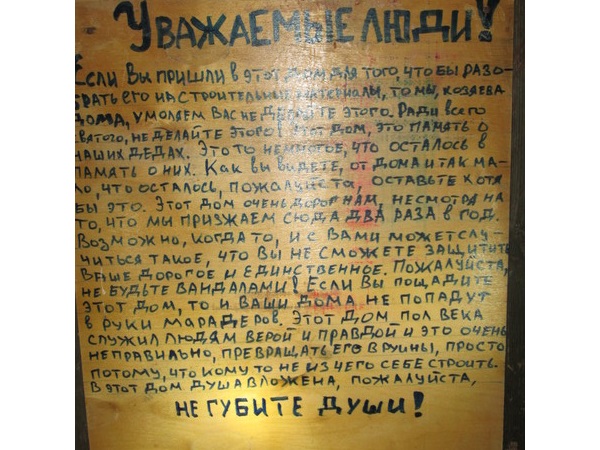 Уважаемые люди!
Если Вы пришли в этот дом для того, что бы разо-
брать его на строительные материалы, то мы, хозяева
дома, умоляем Вас не делайте этого. Ради всего
святого, не делайте этого! Этот дом, это память о
наших дедах. Это то немногое, что осталось в
память о них. Как вы видете, от дома и так ма-
ло, что осталось, пожалуйста, оставьте хотя
бы это. Этот дом очень дорог нам, несмотря на
то, что мы призжаем сюда два раза в год.
Возможно, когда то, и с Вами может слу-
читься такое, что Вы не сможете защитить
Ваше дорогое и единственное. Пожалуйста,
не будьте вандалами! Если Вы пощадите
этот дом, то и Ваши дома не попадут
в руки марадеров. Этот дом пол века
служил людям верой и правдой и это очень
неправильно, превращать его в руины, просто
потому, что кому то не из чего себе строить.
В этот дом душа вложена, пожалуйста,
не губите души!